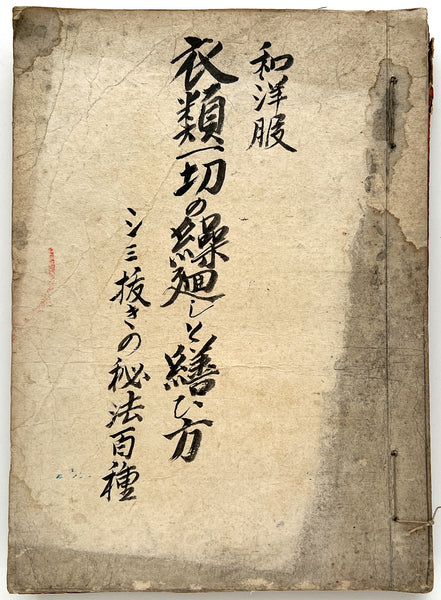 和洋服
衣類一切の繰廻しと繕ひ方
シミ抜きの秘法百種